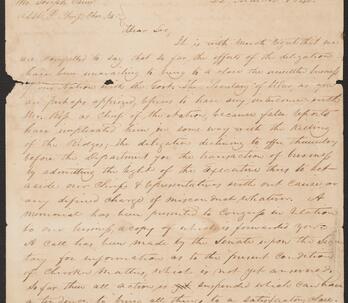 Mr Joseph
Dear Sir,
It is with much regret that we
are compelled to say that so far, the efforts of the delegation
have been unavailing to bring to a close the unsettled business
of our Nation with the Govt. The Secretary of War, as you
are perhaps apprized, refuses to have any intercourse with
Mr. Ross as Chief of the Nation, because false reports
have implicated him in some way with the killing
of the Ridges; the delegation declining to offer themselves
before the Department for the transaction of business
by admitting the right of the Executive thus to set
aside our Chiefs & Representatives with out cause or
any defined charge of misconduct whatever. A
Memorial has been presented to Congress in relation
to our business, a copy of which is forwarded you.
A call has been made by the Senate upon the Secre
tary for information as to the present Condition
of Cherokee Matters, which is not yet answered.
So far then all action is suspended which can have
a tendency to bring all things to a satisfactory close.